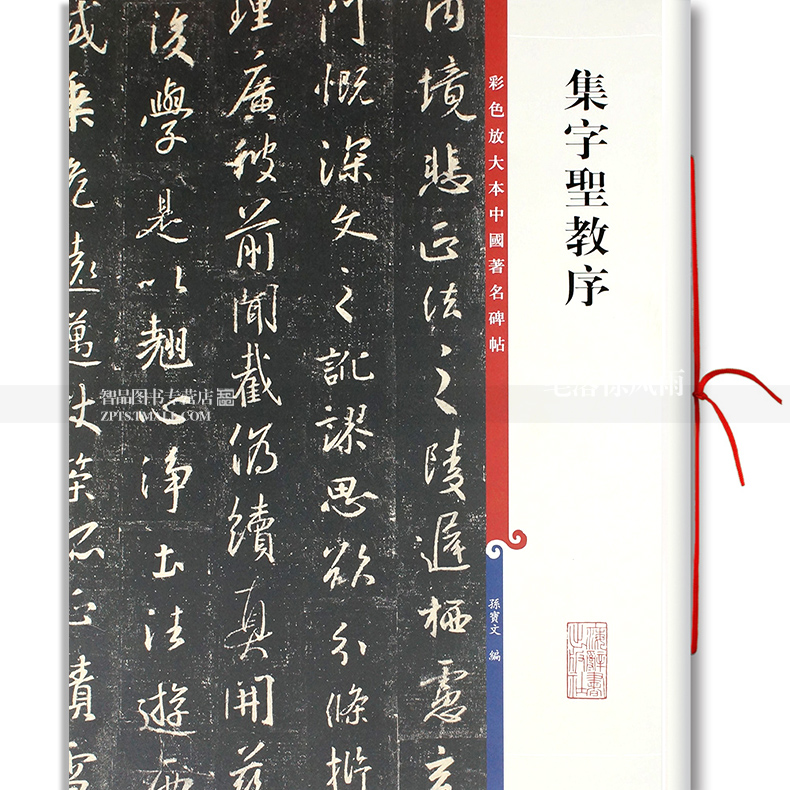 集字聖教序
彩色放大本中國著名碑帖
孫寶文 編
內境悲正法之陵遲栖慮玄
門慨深文之訛謬思欲分條析
理廣彼前聞截偽續真開茲
後學是以翹心淨土法遊西
域乘危遠邁杖策孤征積雪
智品图书专营店
ZPTS.TMALL.COM
笔落惊风雨